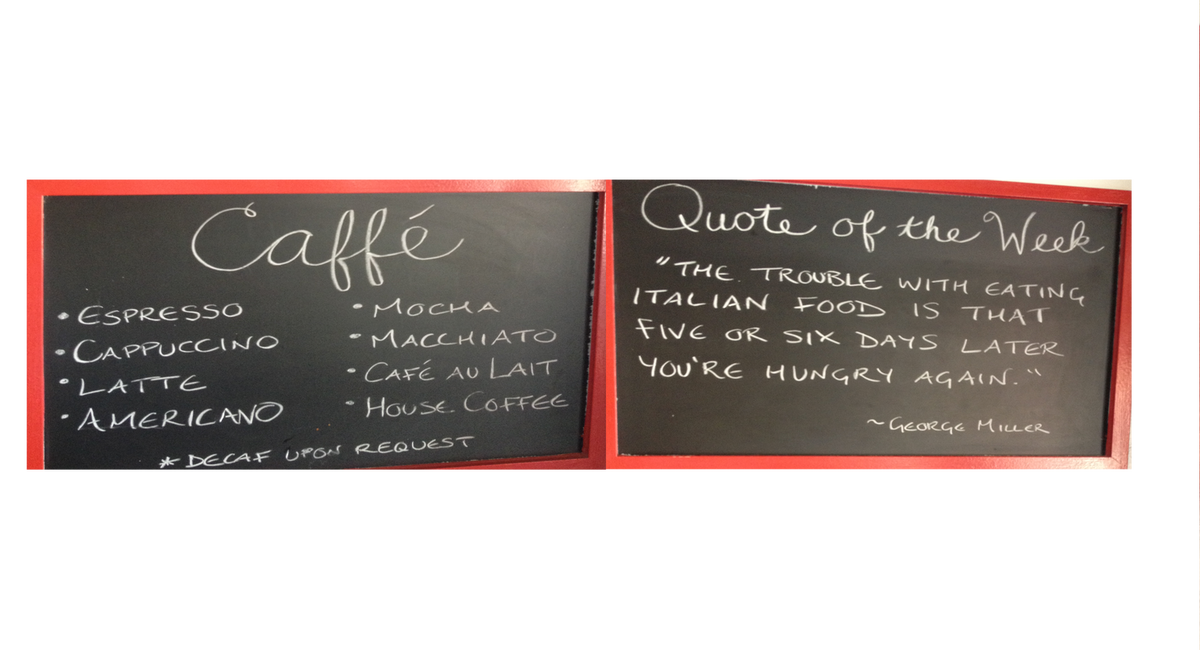 Caffé
• ESPRESSO
• CAPPUCCINO
• LATTE
• AMERICANO
• MOCHA
• MACCHIATO
• CAFÉ AU LAIT
• HOUSE COFFEE
* DECAF UPON REQUEST
Quote of the Week
"THE TROUBLE WITH EATING
ITALIAN FOOD IS THAT
FIVE OR SIX DAYS LATER
YOU'RE HUNGRY AGAIN."
~GEORGE MILLER